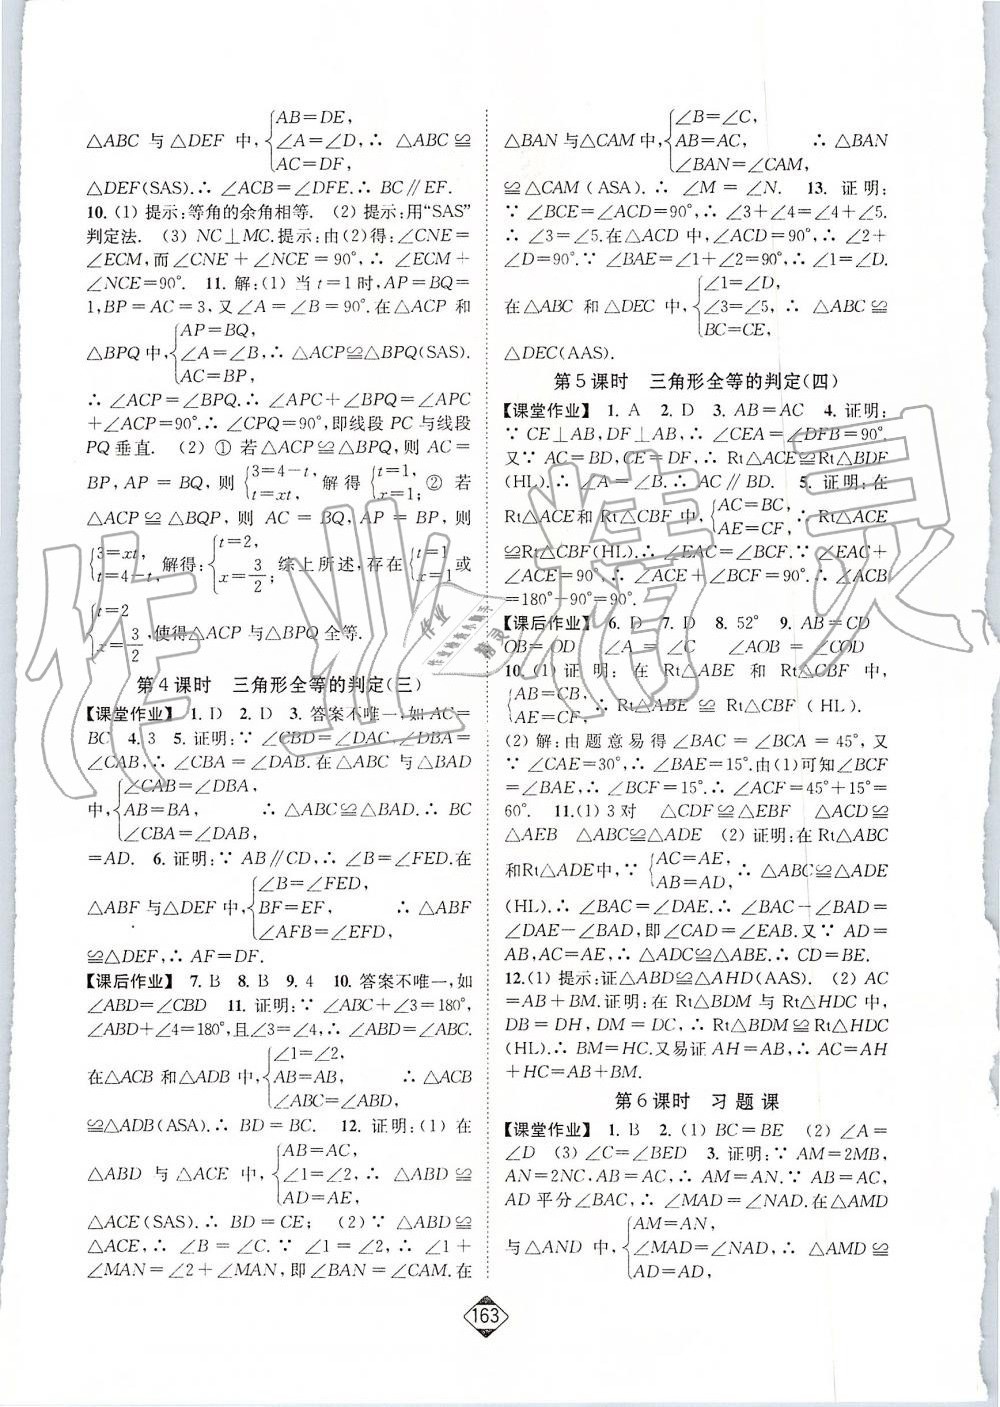 AB=DE,
△ABC 与△DEF 中,{∠A=∠D,∴ △ABC ≌
AC=DF,
△DEF(SAS).∴ ∠ACB=∠DFE.∴ BC∥EF.
10. (1) 提示:等角的余角相等. (2) 提示:用“SAS”
判定法. (3) NC⊥MC.提示:由(2)得:∠CNE=
∠ECM,而∠CNE+∠NCE=90°,∴ ∠ECM+
∠NCE=90°. 11. 解:(1) 当 t=1 时,AP=BQ=
1,BP=AC=3,又∠A=∠B=90°.在△ACP 和
AP=BQ,
△BPQ 中,{∠A=∠B,∴ △ACP≌△BPQ(SAS).
AC=BP,
∴ ∠ACP=∠BPQ,∴ ∠APC+∠BPQ=∠APC
+∠ACP=90°.∴ ∠CPQ=90°,即线段 PC 与线段
PQ 垂直. (2) ① 若△ACP≌△BPQ,则 AC=
BP,AP=BQ,则 {3=4-t, t=xt, 解得 {t=1, x=1; ② 若
△ACP≌△BQP,则 AC=BQ,AP=BP,则
{3=xt, t=4-t, 解得:{t=2, x=3/2; 综上所述,存在{t=1 x=1 或
{t=2 x=3/2,使得△ACP 与△BPQ 全等.
第 4 课时 三角形全等的判定(三)
【课堂作业】 1. D 2. D 3. 答案不唯一,如 AC=
BC 4. 3 5. 证明:∵ ∠CBD=∠DAC,∠DBA=
∠CAB,∴ ∠CBA=∠DAB.在△ABC 与△BAD
∠CAB=∠DBA,
中,{AB=BA, ∴ △ABC≌△BAD.∴ BC
∠CBA=∠DAB,
=AD. 6. 证明:∵ AB∥CD,∴ ∠B=∠FED.在
∠B=∠FED,
△ABF 与△DEF 中,{BF=EF, ∴ △ABF
∠AFB=∠EFD,
≌△DEF,∴ AF=DF.
【课后作业】 7. B 8. B 9. 4 10. 答案不唯一,如
∠ABD=∠CBD 11. 证明:∵ ∠ABC+∠3=180°,
∠ABD+∠4=180°,且∠3=∠4,∴ ∠ABD=∠ABC.
∠1=∠2,
在△ACB 和△ADB 中,{AB=AB, ∴ △ACB
∠ABD=∠ABC,
≌△ADB(ASA).∴ BD=BC. 12. 证明:(1) 在
AB=AC,
△ABD 与 △ACE 中,{∠1=∠2,∴ △ABD ≌
AD=AE,
△ACE(SAS).∴ BD=CE; (2)∵ △ABD≌
△ACE,∴ ∠B=∠C.∵ ∠1=∠2,∴ ∠1+
∠MAN=∠2+∠MAN,即∠BAN=∠CAM.在
∠B=∠C,
△BAN 与△CAM 中,{AB=AC, ∴ △BAN
∠BAN=∠CAM,
≌△CAM (ASA).∴ ∠M=∠N. 13. 证明:
∵ ∠BCE=∠ACD=90°,∴ ∠3+∠4=∠4+∠5.
∴ ∠3=∠5.在△ACD 中,∠ACD=90°,∴ ∠2+
∠D=90°.∵ ∠BAE=∠1+∠2=90°,∴ ∠1=∠D.
∠1=∠D,
在△ABC 和△DEC 中,{∠3=∠5,∴ △ABC≌
BC=CE,
△DEC(AAS).
第 5 课时 三角形全等的判定(四)
【课堂作业】 1. A 2. D 3. AB=AC 4. 证明:
∵ CE⊥AB,DF⊥AB,∴ ∠CEA=∠DFB=90°.
又∵ AC=BD,CE=DF,∴ Rt△ACE≌Rt△BDF
(HL).∴ ∠A=∠B.∴ AC∥BD. 5. 证明:在
Rt△ACE和Rt△CBF 中,{AC=BC, AE=CF, ∴ Rt△ACE
≌Rt△CBF(HL).∴ ∠EAC=∠BCF.∵ ∠EAC+
∠ACE=90°,∴ ∠ACE+∠BCF=90°.∴ ∠ACB
=180°-90°=90°.
【课后作业】 6. D 7. D 8. 52° 9. AB=CD
OB=OD ∠A=∠C ∠AOB=∠COD
10. (1) 证明:在 Rt△ABE 和 Rt△CBF 中,
{AB=CB, AE=CF, ∴ Rt△ABE ≌ Rt△CBF (HL).
(2) 解:由题意易得∠BAC=∠BCA=45°,又
∵ ∠CAE=30°,∴ ∠BAE=15°.由(1)可知∠BCF
=∠BAE,∴ ∠BCF=15°.∴ ∠ACF=45°+15°=
60°. 11.(1) 3 对 △CDF≌△EBF △ACD≌
△AEB △ABC≌△ADE (2) 证明:在Rt△ABC
和Rt△ADE中,∵ {AC=AE, AB=AD, ∴ △ABC≌△ADE
(HL).∴ ∠BAC=∠DAE.∴ ∠BAC-∠BAD=
∠DAE-∠BAD,即∠CAD=∠EAB.又∵ AD=
AB,AC=AE,∴ △ADC≌△ABE.∴ CD=BE.
12.(1) 提示:证△ABD≌△AHD(AAS). (2) AC
=AB+BM.证明:在 Rt△BDM 与 Rt△HDC 中,
DB=DH,DM=DC,∴ Rt△BDM≌Rt△HDC
(HL).∴ BM=HC.又易证 AH=AB,∴ AC=AH
+HC=AB+BM.
第 6 课时 习 题 课
【课堂作业】 1. B 2. (1) BC=BE (2) ∠A=
∠D (3) ∠C=∠BED 3. 证明:∵ AM=2MB,
AN=2NC,AB=AC,∴ AM=AN.∵ AB=AC,
AD 平分∠BAC,∴ ∠MAD=∠NAD.在△AMD
AM=AN,
与△AND 中,{∠MAD=∠NAD,∴ △AMD≌
AD=AD,
163
作业精灵